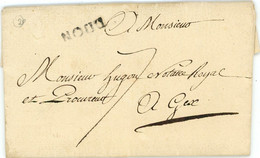 LYON
A Monsieur
Monsieur Hugon Notaire Royal
et Procureur
A Gex